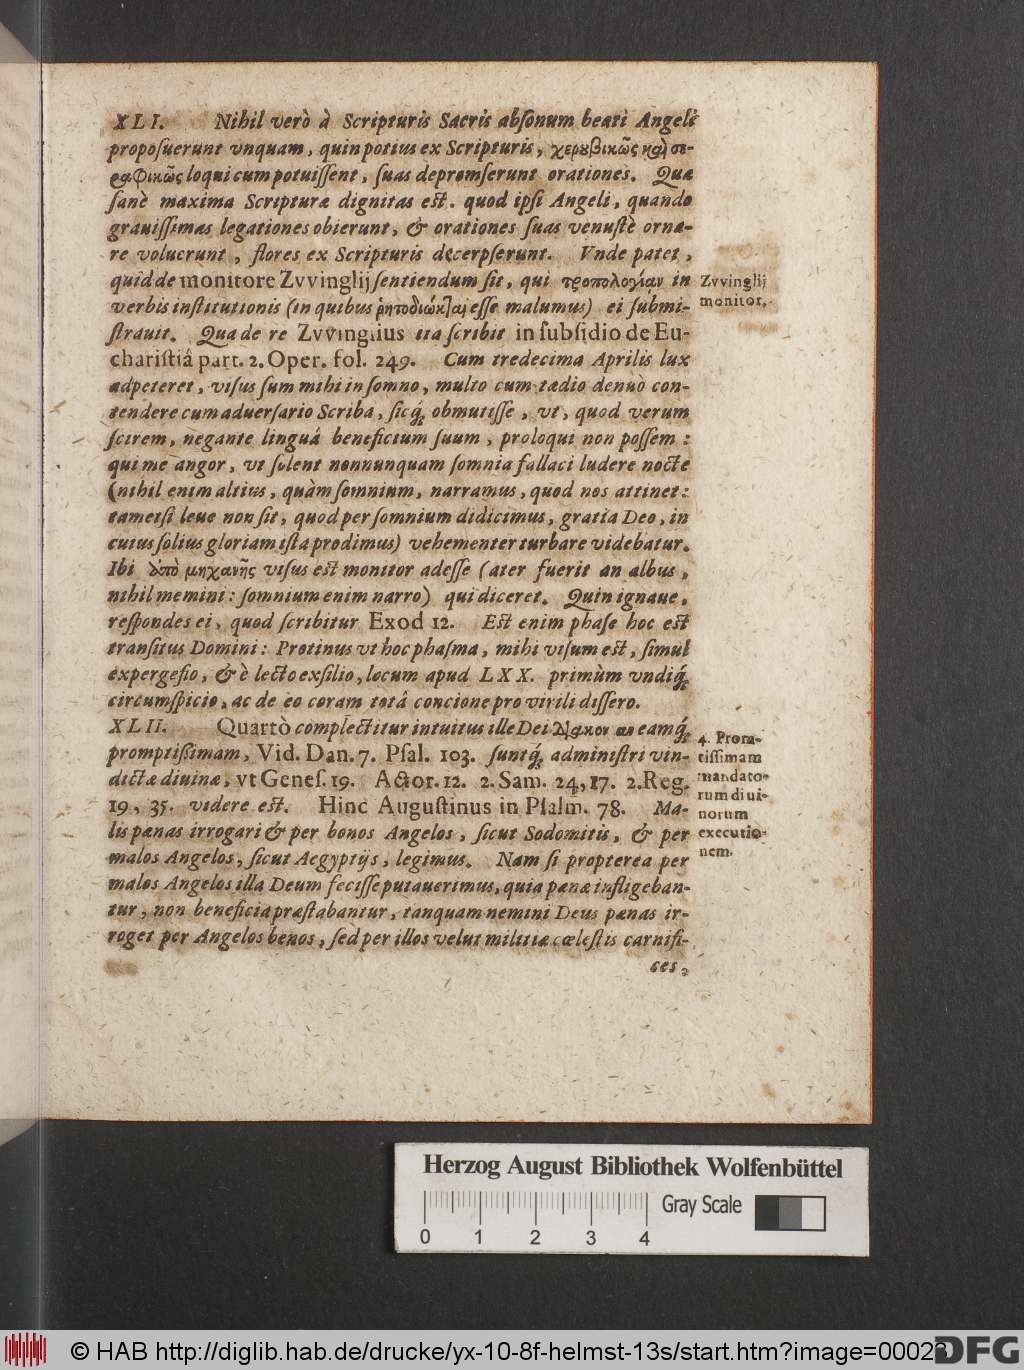 XLI. Nihil verò à Scripturis Sacris absonum beati Angeli
proposuerunt vnquam, quin potius ex Scripturis, χερυβικῶς καὶ σε-
ραφικῶς loqui cum potuissent, suas depromserunt orationes. Quæ
sanè maxima Scripturæ dignitas est. quod ipsi Angeli, quando
grauissimas legationes obierunt, & orationes suas venustè orna-
re voluerunt, flores ex Scripturis decerpserunt. Vnde patet,
quid de monitore Zvvinglij sentiendum sit, qui τροπολογίαν in
verbis institutionis (in quibus ῥητοδιώκται esse malumus) ei submi-
strauit. Qua de re Zvvinglius ita scribit in subsidio de Eu-
charistiâ part. 2. Oper. fol. 249. Cum tredecima Aprilis lux
adpeteret, visus sum mihi in somno, multo cum tædio denuò con-
tendere cum aduersario Scriba, sicq; obmutisse, vt, quod verum
scirem, negante linguâ beneficium suum, proloqui non possem:
qui me angor, vt solent nonnunquam somnia fallaci ludere nocte
(nihil enim altius, quàm somnium, narramus, quod nos attinet:
tametsi leue non sit, quod per somnium didicimus, gratia Deo, in
cuius solius gloriam ista prodimus) vehementer turbare videbatur.
Ibi ἀπὸ μηχανῆς visus est monitor adesse (ater fuerit an albus,
nihil memini: somnium enim narro) qui diceret. Quin ignaue,
respondes ei, quod scribitur Exod 12. Est enim phase hoc est
transitus Domini: Protinus vt hoc phasma, mihi visum est, simul
expergefio, & è lecto exsilio, locum apud LXX. primùm vndiq;
circumspicio, ac de eo coram totâ concione pro virili dissero.
XLII. Quartò complectitur intuitus ille Dei eamq;
promptißimam, Vid. Dan. 7. Psal. 103. suntq; administri vin-
dictæ diuinæ, vt Genes. 19. Actor. 12. 2. Sam. 24, 17. 2. Reg.
19, 35. videre est. Hinc Augustinus in Psalm. 78. Ma-
lis pœnas irrogari & per bonos Angelos, sicut Sodomitis, & per
malos Angelos, sicut Aegyptijs, legimus. Nam si propterea per
malos Angelos illa Deum fecisse putauerimus, quia pœnæ infligeban-
tur, non beneficia præstabantur, tanquam nemini Deus pœnas ir-
roget per Angelos bonos, sed per illos velut militiæ cœlestis carnifi-
ces,
Zvvinglij
monitor.
4. Prom-
tissimam
mandato-
rum diui-
norum
executio-
nem.
Herzog August Bibliothek Wolfenbüttel
Gray Scale
0 1 2 3 4
© HAB http://diglib.hab.de/drucke/yx-10-8f-helmst-13s/start.htm?image=00023
DFG